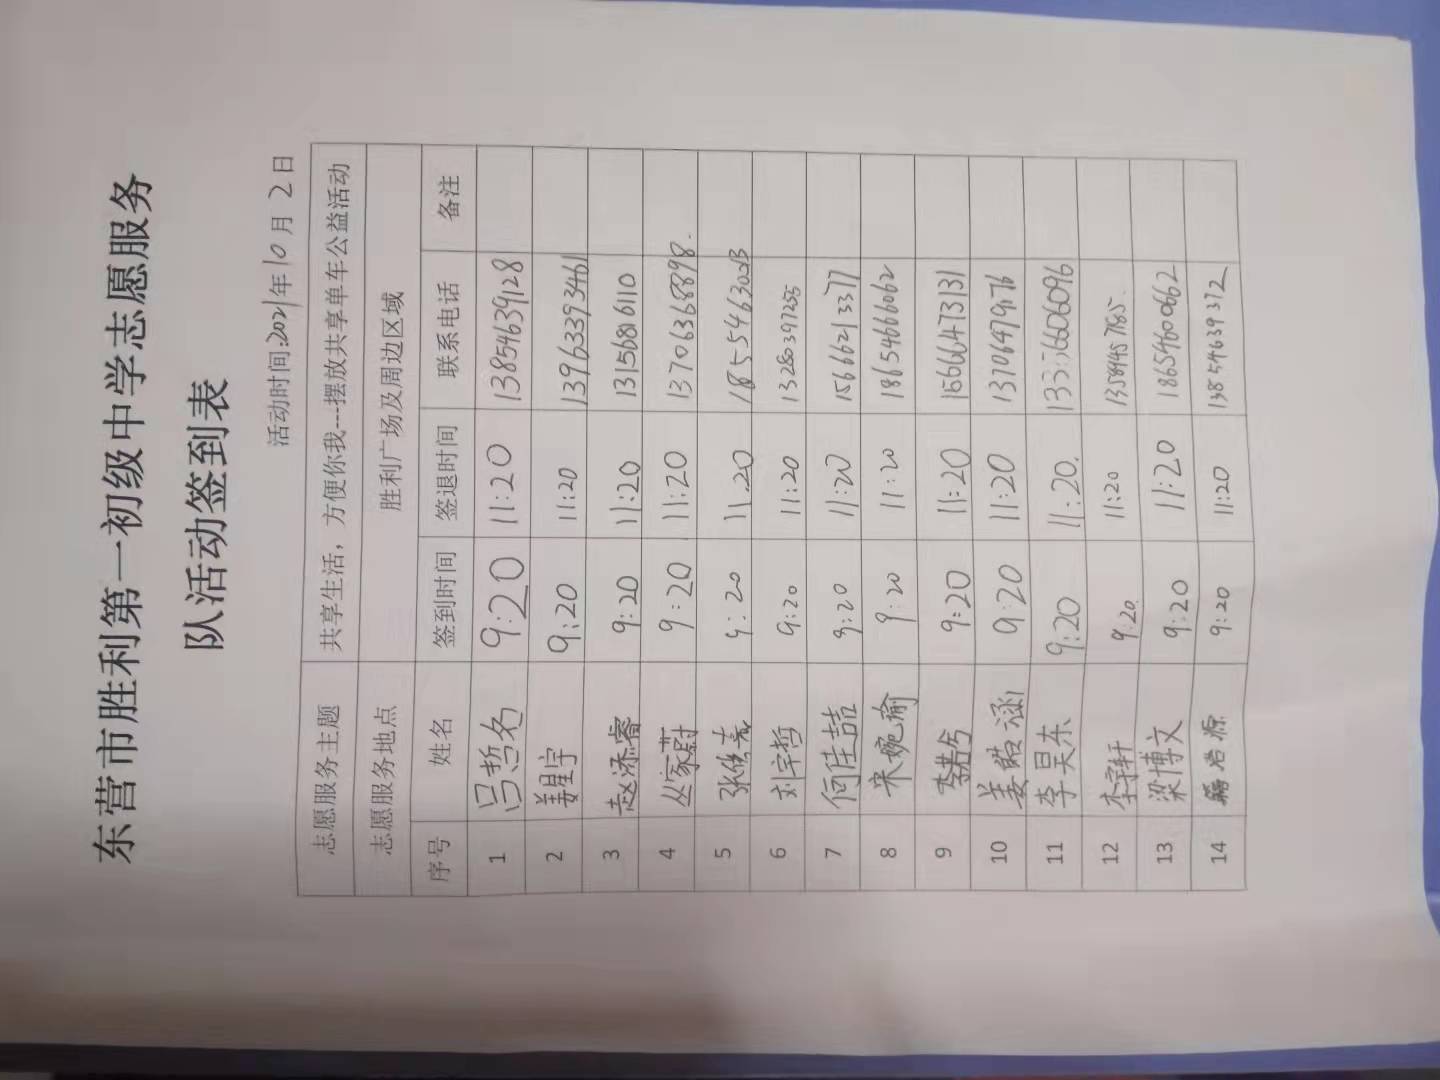 东营市胜利第一初级中学志愿服务
队活动签到表
活动时间:2021年10月2日
志愿服务主题 共享生活，方便你我---摆放共享单车公益活动
志愿服务地点 胜利广场及周边区域
序号 姓名 签到时间 签退时间 联系电话 备注
1 吕哲名 9:20 11:20 13854639128
2 姜星宇 9:20 11:20 13963393461
3 赵添睿 9:20 11:20 13156816110
4 丛家蔚 9:20 11:20 13706368898.
5 9:20 11.20
6 刘宇哲 9:20 11:20 13280397255
7 何佳喆 9:20 11:20 15666213377
8 宋婉瑜 9:20 11:20 18654666062
9 李若兮 9:20 11:20 15666473131
10 姜皓涵 9:20 11:20 13706479176
11 李昊东 9:20 11:20.
12 李宇轩 9:20. 11:20
13 梁博文 9:20 11:20 18654600662
14 9:20 11:20 13854639372